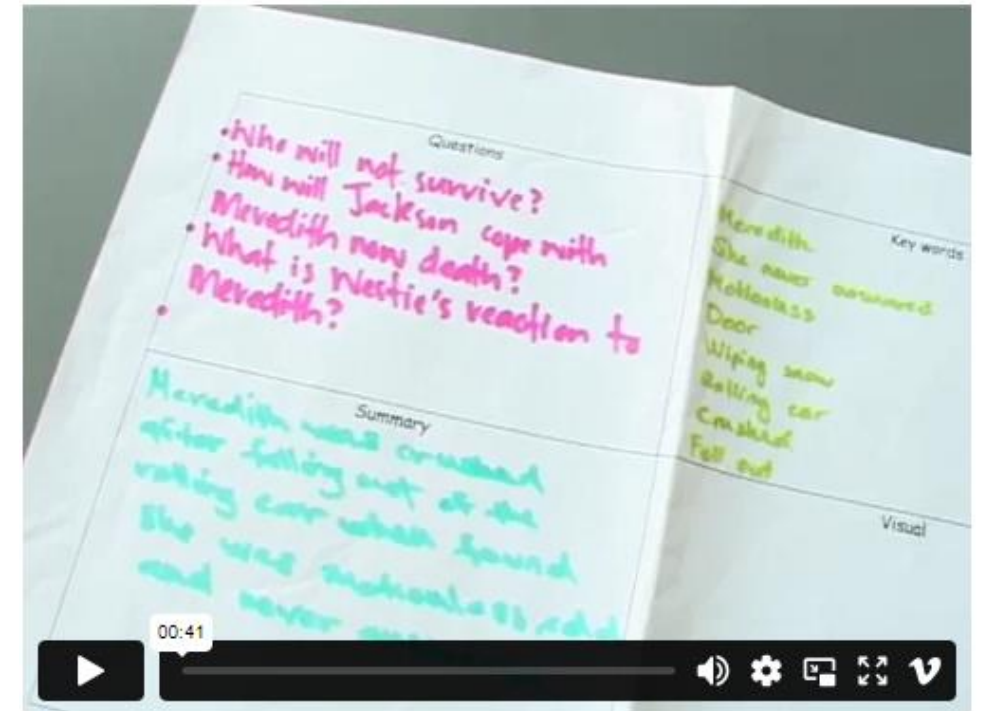 Questions
• Who will not survive?
• How will Jackson cope with
Meredith mom death?
• What is Westie's reaction to
Meredith?
•
Key words
Meredith
She never answered
Motionless
Door
Wiping snow
Rolling car
Crushed
Fell out
Summary
Meredith was crushed
after falling out of the
rolling car when found
she was motionless and
and never
Visual
00:41